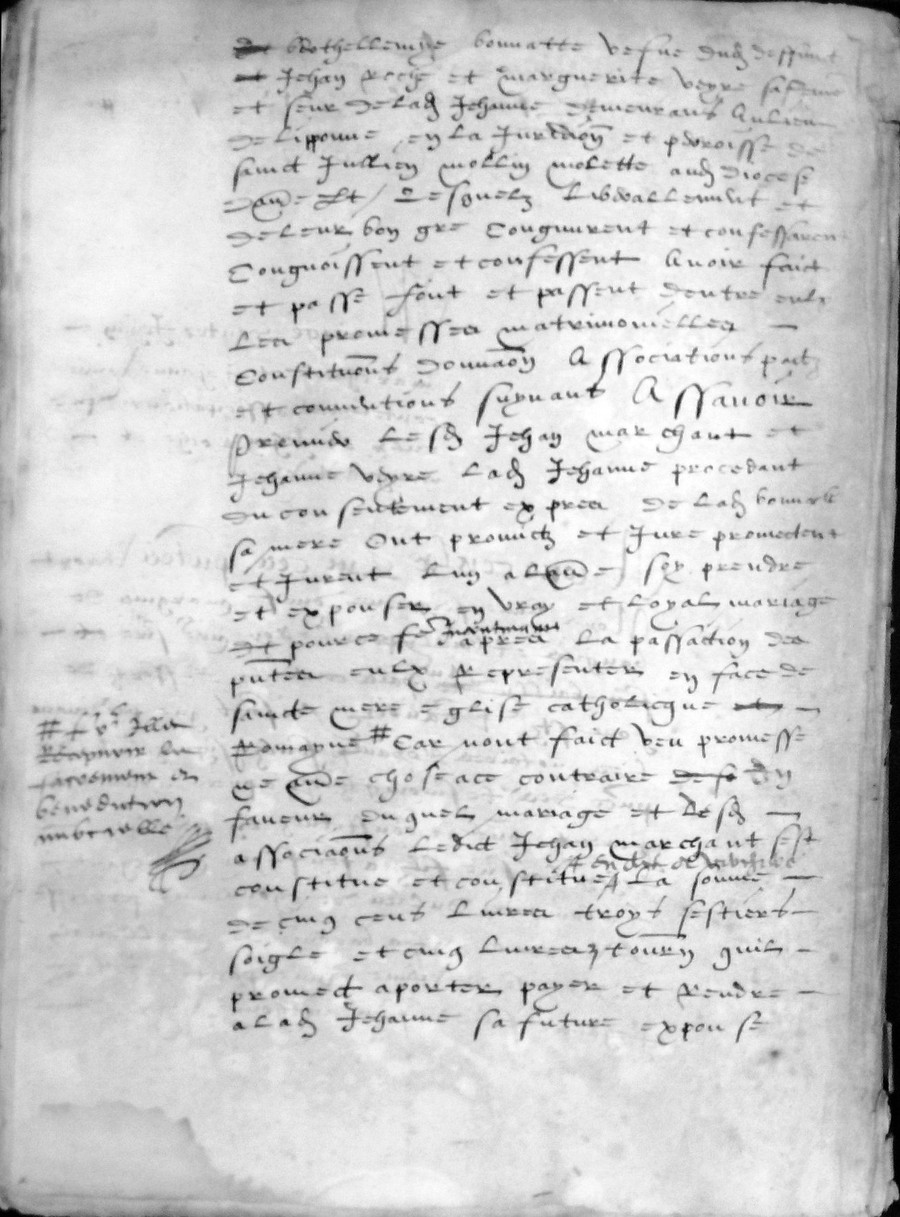 Bothellemye bonnatte vefue dud deffunct
et Jehan Roche et marguerite veyre sa femme
et seur de lad Jehanne demeurans au lieu
de lipponne en la Jurdiaon et parroisse de
sainct Jullien mollin molette aud diocese
Lesquelz liberallement et
de leur bon gre Congnurent et confessarent
Congnoissent et confessent Avoir faict
et passe font et passent dentre eulx
Les promesses matrimonielles
Constituons donnaon Associations pact
et conventions suyvans Assavoir
premier lesd Jehan marchant et
Jehanne veyre lad Jehanne procedant
du consentement expres de lad bonnatte
sa mere Ont promictz et Jure promectent
et Jurent lun a laue soy prendre
et expouser en vray et loyal mariage
et pource fe apres La passaction des
pntes eulx Representer en face de
saincte mere eglise catholicque et
Romayne # Car nont faict veu promesse
ne aue chose ace contraire de se En
faveur duquel mariage et desd
associaons ledict Jehan marchant sest
constitue et constitue La somme
de cinq cens livres troys sestiers
soigle et cinq livres tourn quil
promect aporter payer et Rendre
a lad Jehanne sa future expouse
# Illec
Recepvoir le
sacrement de
benediction
nuptialle